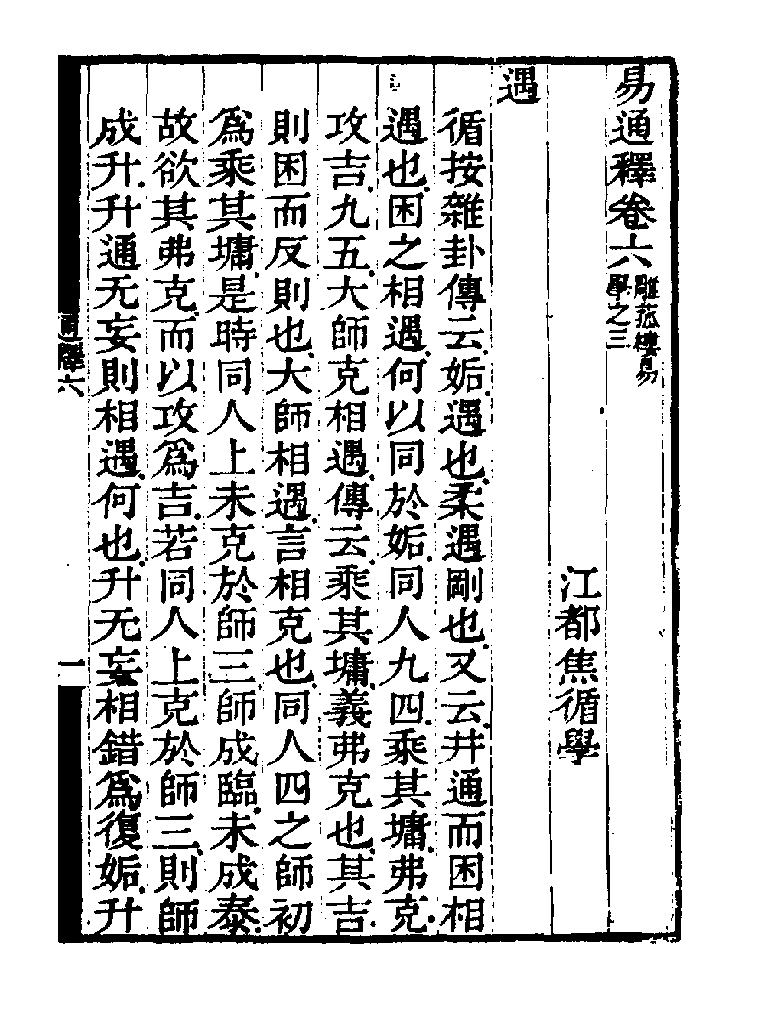 易通釋卷六雕菰樓易學之三
江都焦循學
遇
循按雜卦傳云姤遇也柔遇剛也又云井通而困相
遇也困之相遇何以同於姤同人九四乘其墉弗克
攻吉九五大師克相遇傳云乘其墉義弗克也其吉
則困而反則也大師相遇言相克也同人四之師初
爲乘其墉是時同人上未克於師三師成臨未成泰
故欲其弗克而以攻爲吉若同人上克於師三則師
成升升通无妄則相遇何也升无妄相錯爲復姤升
通釋六
一